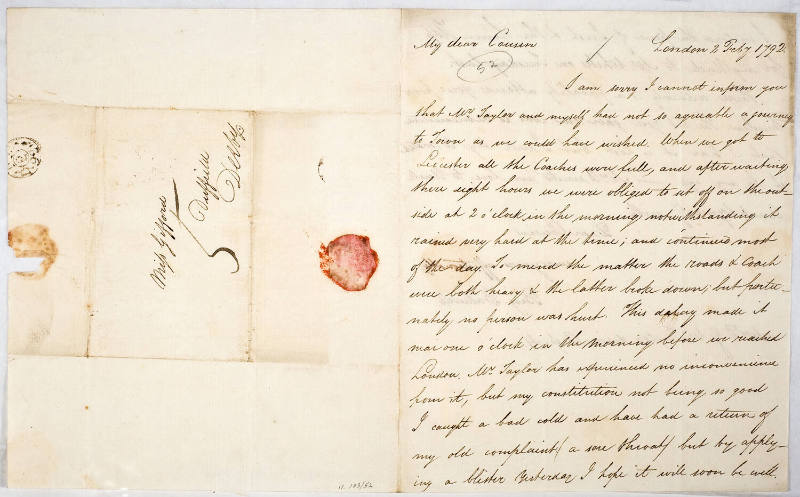 Miss Gifford
Duffield
Derby
5
11. 103/52
My dear Cousin
London 2 Feby 1792.
52
I am sorry I cannot inform you
that Mr. Taylor and myself had not so agreeable a journey
to Town as we could have wished. When we got to
Leicester all the Coaches were full, and after waiting
there eight hours we were obliged to set off on the out-
side at 2 o'Clock in the morning notwithstanding it
rained very hard at the time; and continued most
of the day. To mend the matter the roads & Coach
were both heavy & the latter broke down; but fortu-
nately no person was hurt. This delay made it
near one o'clock in the morning before we reached
London. Mr. Taylor has experienced no inconvenience
from it, but my constitution not being so good
I caught a bad cold and have had a return of
my old complaint (a sore throat) but by apply-
ing a blister Yesterday I hope it will soon be well.